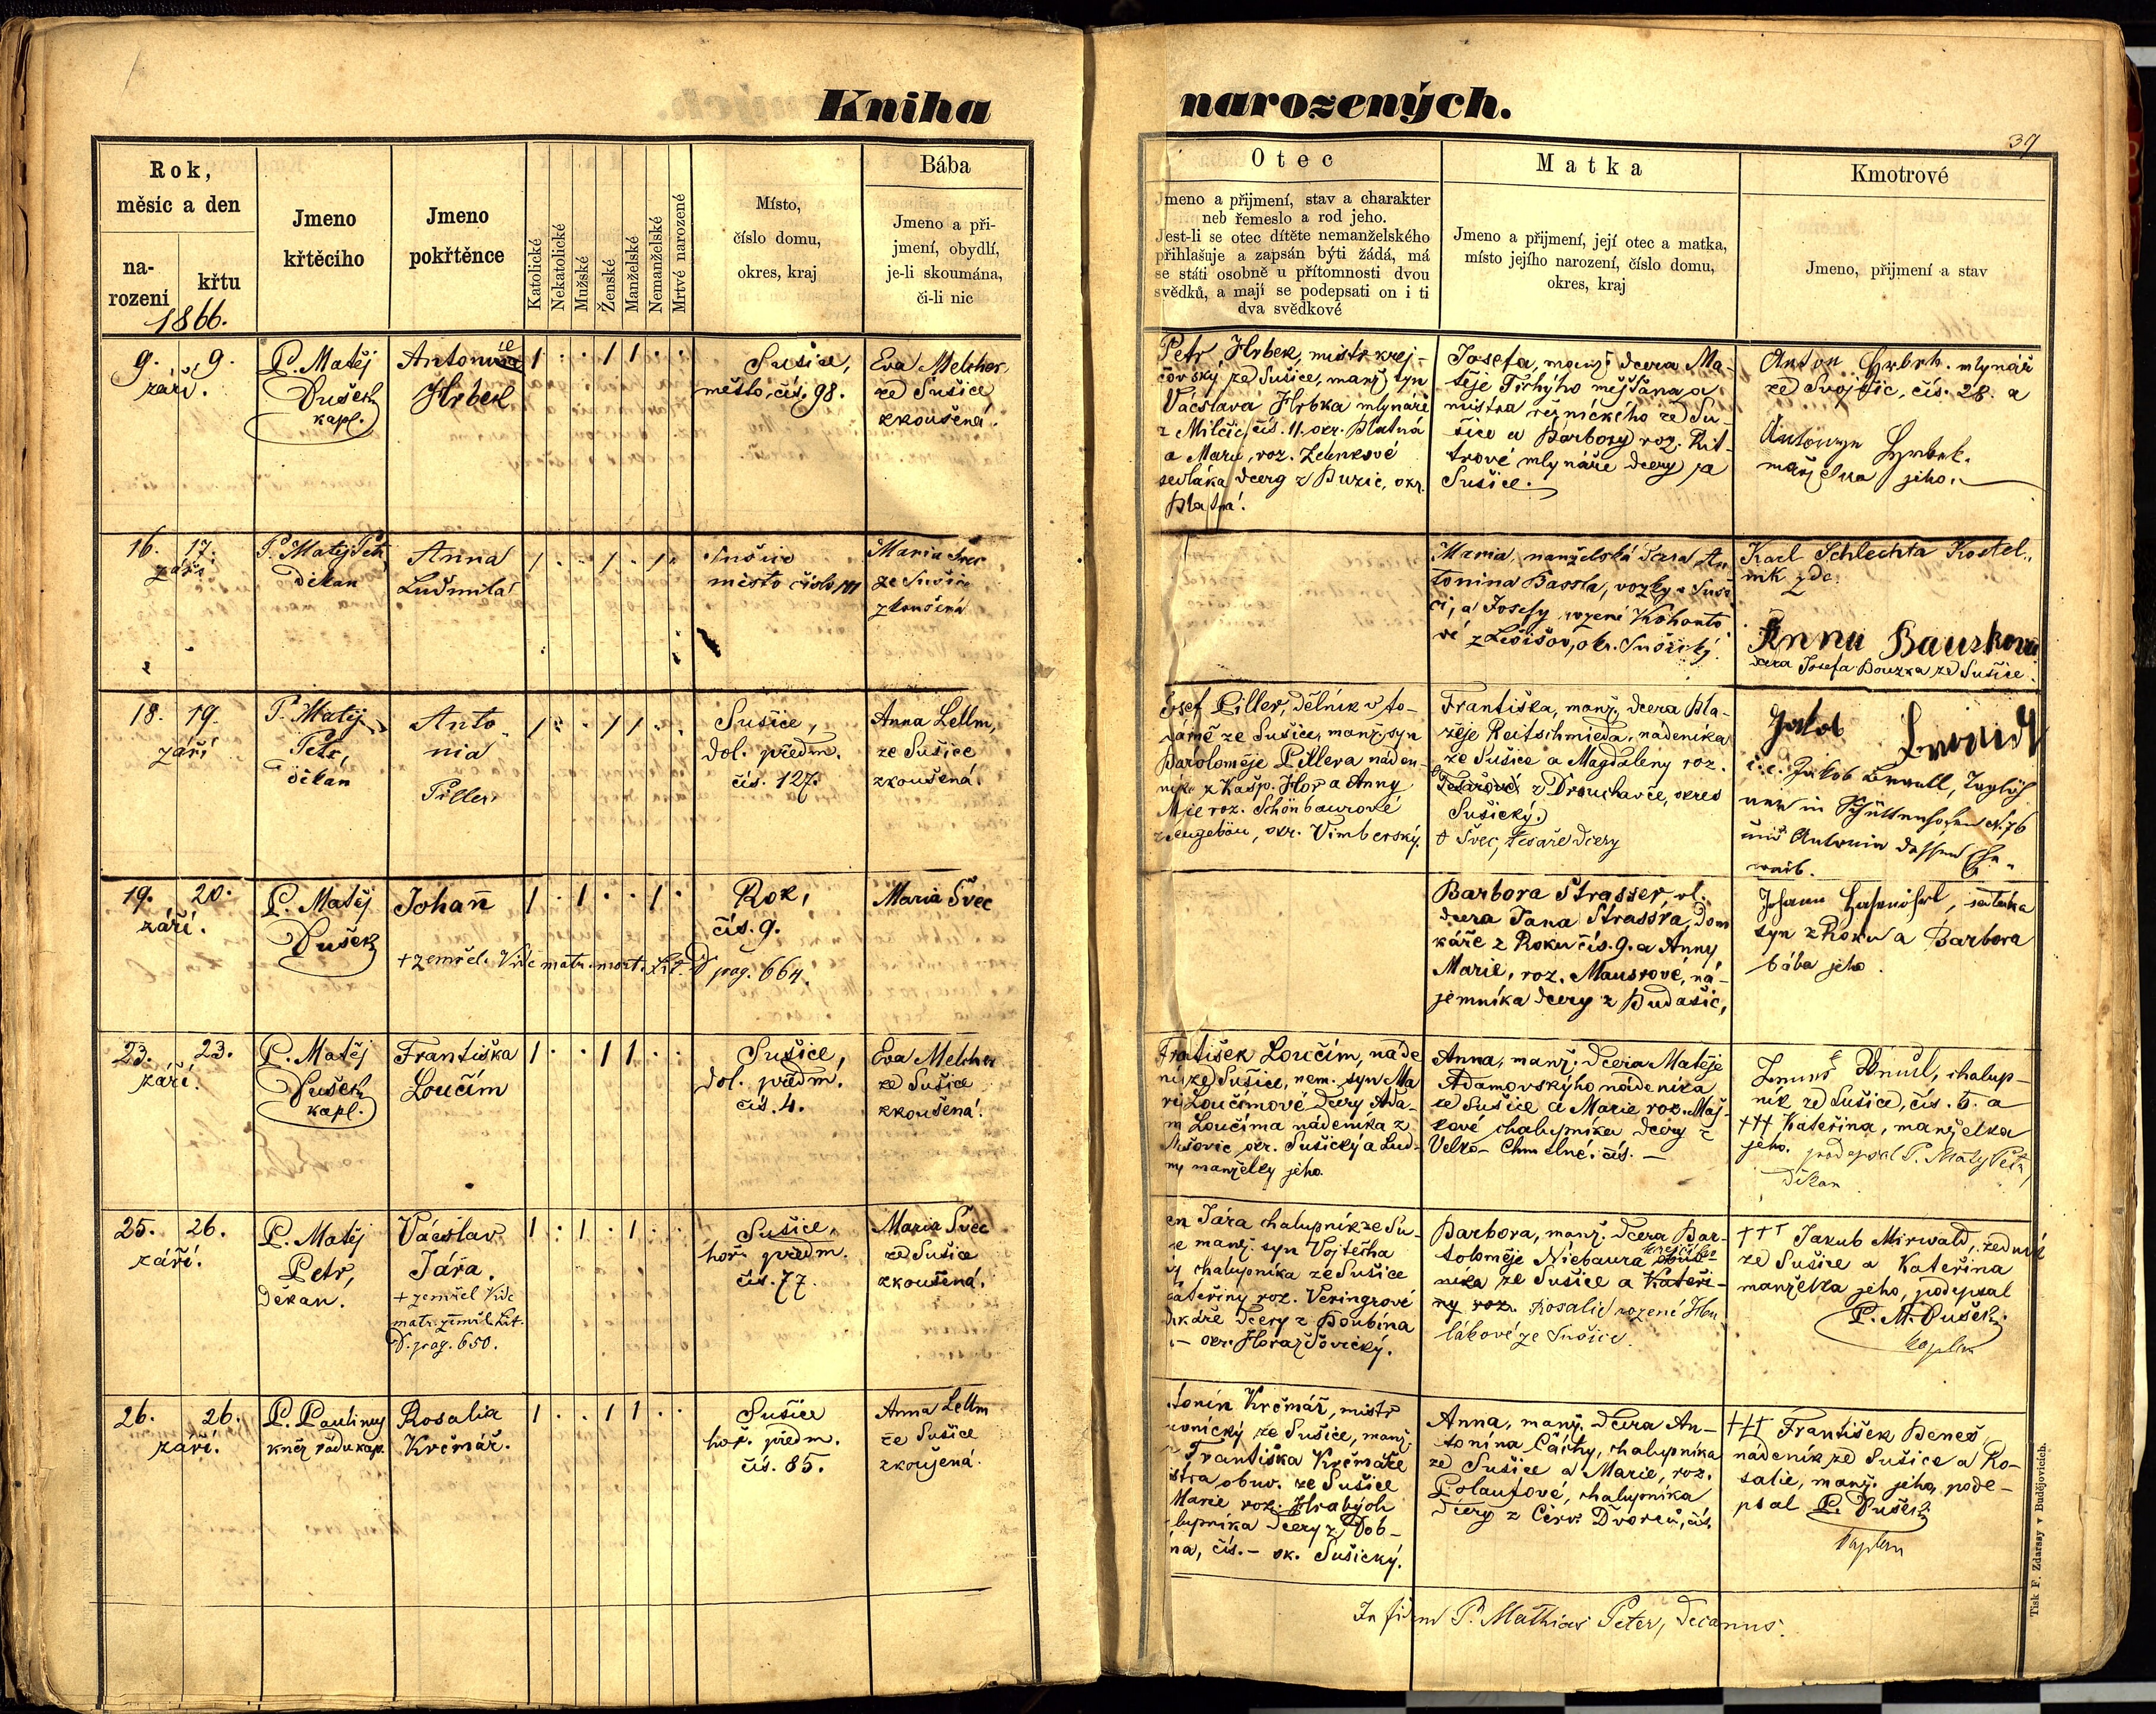 Kniha
narozených.
39
Rok,
měsíc a den
na-
rození
křtu
1866.
Jmeno
křtěcího
Jmeno
pokřtěnce
Katolické
Nekatolické
Mužské
Ženské
Manželské
Nemanželské
Mrtvé narozené
Místo,
číslo domu,
okres, kraj
Bába
Jmeno a při-
jmení, obydlí,
je-li skoumána,
či-li nic
Otec
Jmeno a přijmení, stav a charakter
neb řemeslo a rod jeho.
Jest-li se otec dítěte nemanželského
přihlašuje a zapsán býti žádá, má
se státi osobně u přítomnosti dvou
svědků, a mají se podepsati on i ti
dva svědkové
Matka
Jmeno a přijmení, její otec a matka,
místo jejího narození, číslo domu,
okres, kraj
Kmotrové
Jmeno, přijmení a stav
9. 9.
září.
P. Matěj
Dušek
kapl.
Hrbek
Sušice,
město, čís. 98.
Eva Melcher
ze Sušice
zkoušená.
Petr Hrbek, mistr krej-
čovský ze Sušice, manž. syn
Václava Hrbka mlynáře
z Milčic, čís. 11. okr. Blatná
a Marie, roz. Zelenkové
sedláka dcery z Buzic, okr.
Blatná.
Josefa, manž. dcera Ma-
těje Tichýho měšťana a
mistra řeznického ze Su-
šice a Barbory roz. Rit-
trové mlynáře dcery za
Sušice.
Anton Hrbek. mlynář
ze Svojšic, čís. 28. a
Hrbek.
manželka jeho.
16. 17.
září
P. Matěj Petr
děkan
Anna
Ludmila
Sušice
město číslo
Maria Švec
ze Sušice
zkoušená
Maria, manželská dcera An-
tonina Bassla, vozky v Suši-
ci, a Josefy rozené Kohouto-
vé z okr. Sušický.
Karl Schlechta Kostel-
nik zde.
Anna Bauzkova
dcera Josefa Bouzka ze Sušice.
18. 19.
září
P. Matěj
Petr,
děkan
Anto-
nia
Piller.
Sušice,
dol. předm.
čís. 127.
Anna Lellm,
ze Sušice
zkoušená.
Josef Piller, dělník v to-
várně ze Sušice, manž. syn
Baroloměje Pillera náden-
níka z Kašp. Hor a Anny
Marie roz. Schönbaurové
okr. Vimberský.
Františka, manž. dcera Bla-
žeje Reitschmieda, nádeníka
ze Sušice a Magdaleny roz.
z Drouhavče, okres
Sušický.)
Švec, tesaře dcery
Jakob
in Schüttenhofen N. 76
19. 20.
září.
P. Matěj
Dušek
Johann
+ zemřel. Vide matr. mort. Lit. D
pag. 664.
Rok,
čís. 9.
Maria Švec
Barbora Strasser, vl.
dcera Jana Strassra, dom-
káře z Roku čís. 9. a Anny
Marie, roz. Mausrové, ná-
jemníka dcery z Budašic,
Johann
syn z Roku a Barbora
bába jeho.
23. 23.
září.
P. Matěj
Dušek
kapl.
Františka
Loučím
Sušice,
dol. předm.
čís. 4.
Eva Melcher
ze Sušice
zkoušená.
František Loučím, náde-
ník ze Sušice, nem. syn Ma-
rie Loučímové dcery Ada-
m Loučíma nádeníka z
okr. Sušický a Lud-
my manželky jeho.
Anna, manž. dcera Matěje
Adamovskýho nádeníka
ze Sušice a Marie roz. Maš-
kové chalupníka dcery z
Velko-Chmelné. čís. —
chalup-
ník ze Sušice, čís. 5. a
+++ Kateřina, manželka
jeho. podepsal P. Matěj Petr,
děkan
25. 26.
září.
P. Matěj
Petr,
děkan.
Václav
Jára.
+ zemřel Vide
matr. zemřel. Lit.
D. pag. 650.
Sušice,
hoř. předm.
čís. 77.
Maria Švec
ze Sušice
zkoušená.
en Jára chalupník ze Su-
e manž. syn Vojtěcha
y chalupníka ze Sušice
ateřiny roz. Veringrové
dcery z Boubína
— okr. Horažďovický.
Barbora, manž. dcera Bar-
toloměje Niebaura
níka ze Sušice a Kateři-
ny roz. Rosalie rozené
lákové ze Sušice.
+++ Jakub Mirwald, zedník
ze Sušice a Kateřina
manželka jeho, podepsal
P. M. Dušek.
kaplan
26. 26.
září.
P. Paulinus
kněz řádu kap.
Rosalia
Krčmář.
Sušice
hoř. předm.
čís. 85.
Anna Lellm
ze Sušice
zkoušená.
tonín Krčmář, mistr
ze Sušice, manž.
Františka Krčmáře
istra obuv. ze Sušice
Marie roz. Hrabých
lupníka dcery z Dob-
na, čís. — ok. Sušický.
Anna, manž. dcera An-
tonína Cáchy, chalupníka
ze Sušice a Marie, roz.
Polaufové, chalupníka
dcery z Červ. Dvorců, čís.
+++ František Beneš
nádeník ze Sušice a Ro-
salie, manž. jeho, pode-
psal P. Dušek
kaplan
P. Mathias Peter, Decanus.
Tisk F. Zdarssy v Budějovicích.